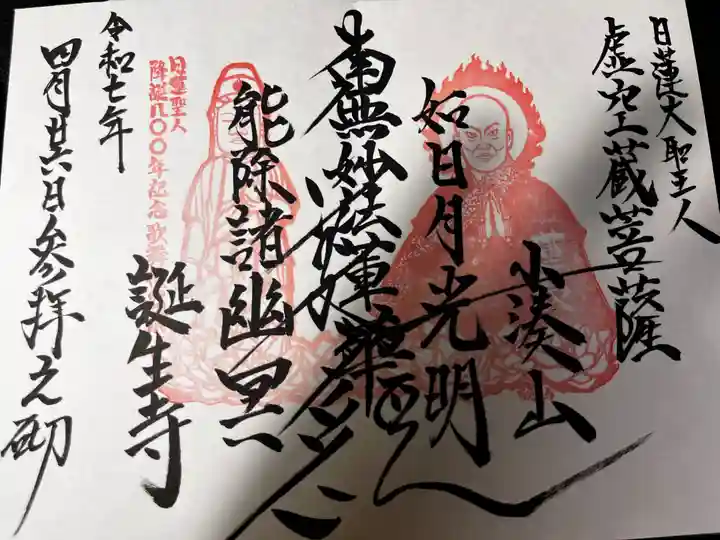 日蓮大聖人
虚空蔵菩薩
小湊山
如日月光明
南無妙法蓮華経
能除諸幽冥
誕生寺
日蓮聖人
降誕八〇〇年記念歌
令和七年
四月廿六日参拝之砌